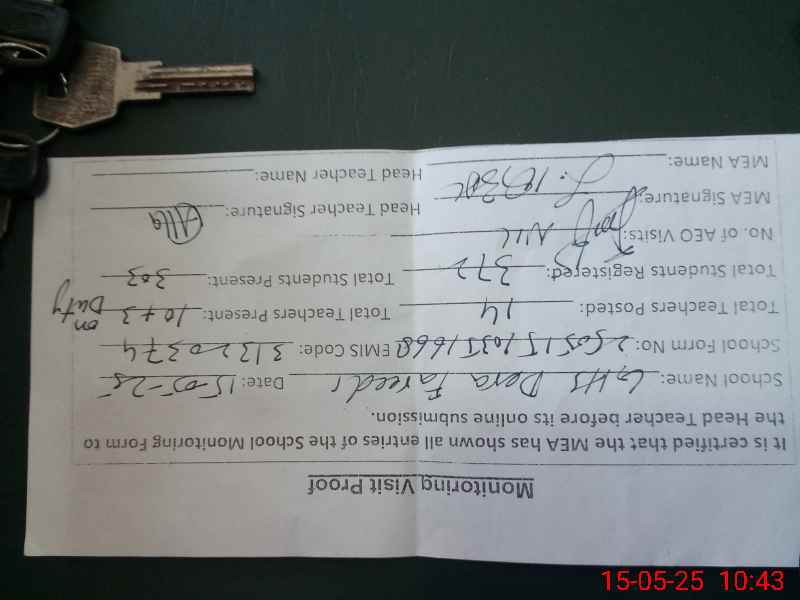 Monitoring Visit Proof
It is certified that the MEA has shown all entries of the School Monitoring Form to
the Head Teacher before its online submission.
School Name: GHS Dera Fareedi Date: 15-05-25
School Form No: EMIS Code: 31320374
Total Teachers Posted: 14 Total Teachers Present: 10+3 on Duty
Total Students Registered: 372 Total Students Present: 303
No. of AEO Visits: NIL
MEA Signature: Head Teacher Signature:
MEA Name: Head Teacher Name:
15-05-25 10:43